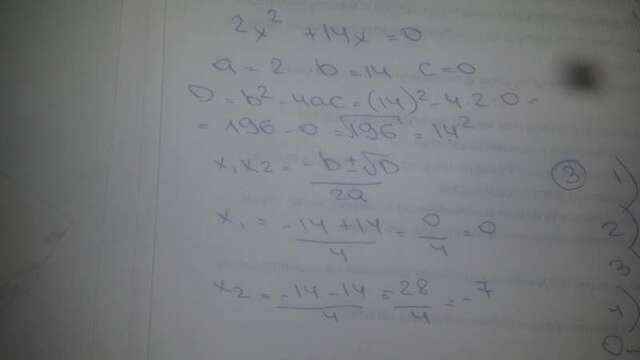 2x² + 14x = 0
a = 2 b = 14 c = 0
D = b² - 4ac = (14)² - 4·2·0 =
= 196 - 0 = √196 = 14²
x₁x₂ = -b ± √D / 2a
x₁ = -14 + 14 / 4 = 0 / 4 = 0
x₂ = -14 - 14 / 4 = 28 / 4 = -7
③
1)
2)
3
4)
0